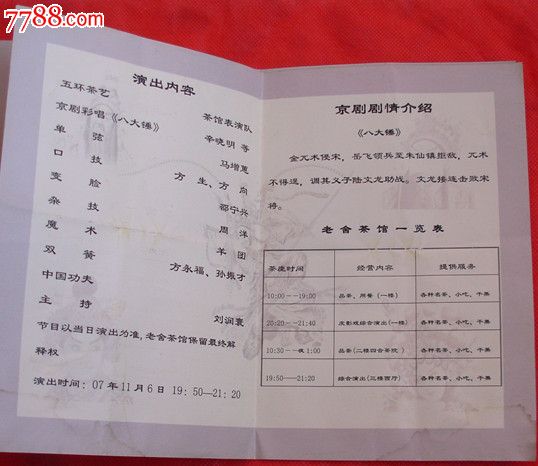 7788.com
中国收藏热线
演出内容
五环茶艺 茶馆表演队
京剧彩唱《八大锤》 辛晓明 等
单弦 马增蕙
口技 方生、方向
变脸 邵宁兴
杂技 周洋
魔术 羊团
双簧 方永福、孙振才
中国功夫
主持 刘润寰
节目以当日演出为准,老舍茶馆保留最终解
释权
演出时间:07年11月6日 19:50—21:20
京剧剧情介绍
《八大锤》
金兀术侵宋,岳飞领兵至朱仙镇拒敌,兀术
不得逞,调其义子陆文龙助战。文龙接连击败宋
将。
老舍茶馆一览表
茶座时间 经营内容 提供服务
10:00--19:00 品茶、用餐(一楼) 各种名茶、小吃、干果
20:20--21:40 皮影戏综合演出(一楼) 各种名茶、小吃、干果
10:30--夜1:00 品茶(二楼四合茶院) 各种名茶、小吃、干果
19:50——21:20 综合演出(三楼西厅) 各种名茶、小吃、干果